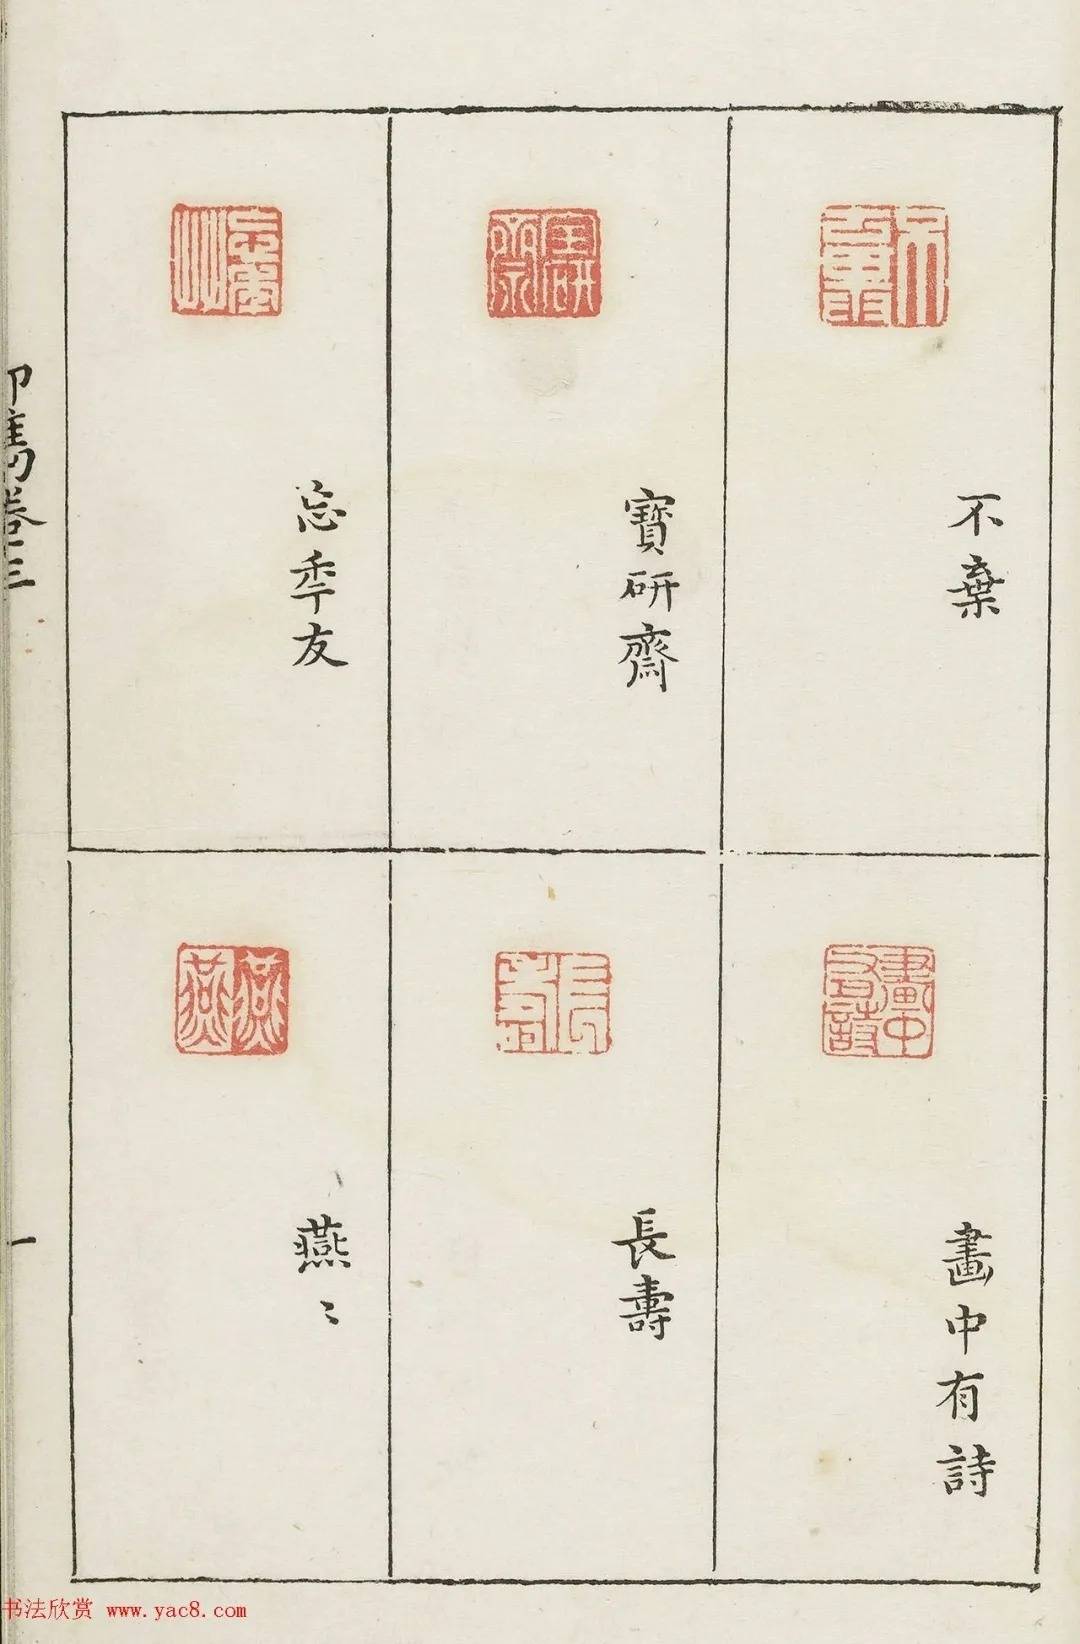 不棄
寶研齋
忘秊友
畫中有詩
長壽
燕〻
印雋卷三
一
书法欣赏 www.yac8.com